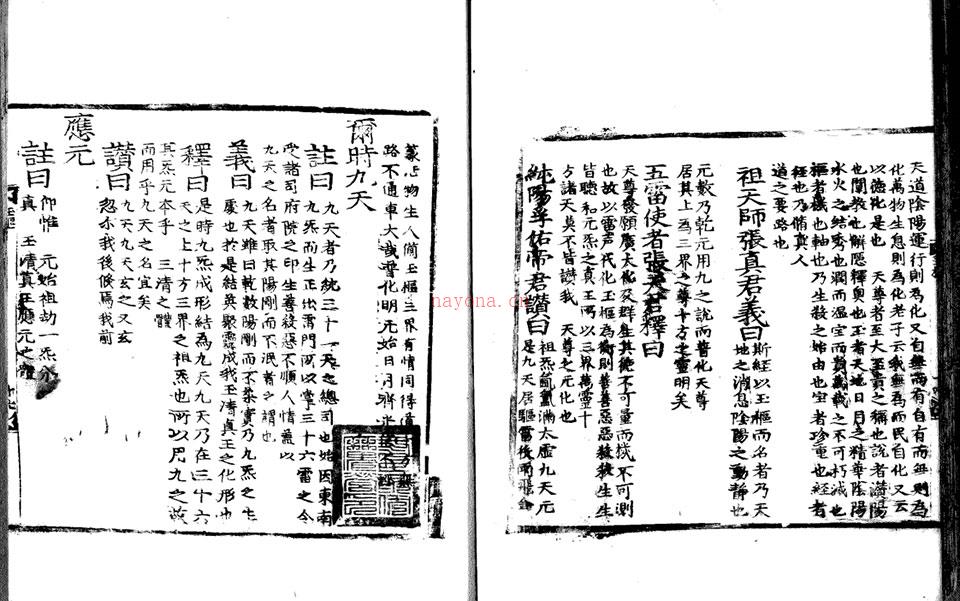 天道陰陽運行則為化又自無而有自有而無則為
化萬物生息則為化老子云我無為而民自化又云
以德化是也 天尊者至大至貴之稱也說者潛陽
也闡教也解隱釋奧也玉者天地日月之精華陰陽
水火之結秀也潤而溫宝而貴藏之不可朽滅也
樞者機也軸也乃生殺之始由也宝者珍重也經者
徑也乃脩真人
道之要路也
祖天師張真君義曰
斯經以玉樞而名者乃天
地之消息陰陽之動静也
元數乃乾元用九之說而普化天尊
居其上為三界之尊十方之靈明矣
五雷使者張真君釋曰
天尊發願廣大化及群生其德不可量而機不可測
也故以雷声代化玉樞為衡則善善惡惡殺殺生生
皆聽乎元炁之真王所以三界萬靈十
方諸天莫不皆讚我 天尊之元化也
純陽孚佑帝君讚曰
祖炁氤氳滿太虛九天元
是九天居驅雷後
物生人備玉樞三界有情同得
路不通車大哉羣化明元始日月
爾時九天
註曰
九天者乃統三十一天之總司也始因東南
九炁而生正出雷門所以掌三十六雷之令
受諸司府院之印生善殺惡不順人情
九天之名者取其陽剛而不泯者之謂也
義曰
九天雖曰乾數陽剛而不柔實乃九炁之生
慶也於是結英聚靈成我玉清真王之化形也
釋曰
是時九炁成形結為九天九天乃在三十六
天之上十方三界之祖炁也所以凡九之
其炁元本乎 三清之體
而用乎九天之名宜矣
讚曰
九天九天玄之又玄
忽示我後倏焉我前
應元
註曰
仰惟 元始祖劫一炁
真 玉清真王應元之體
nayona.cn